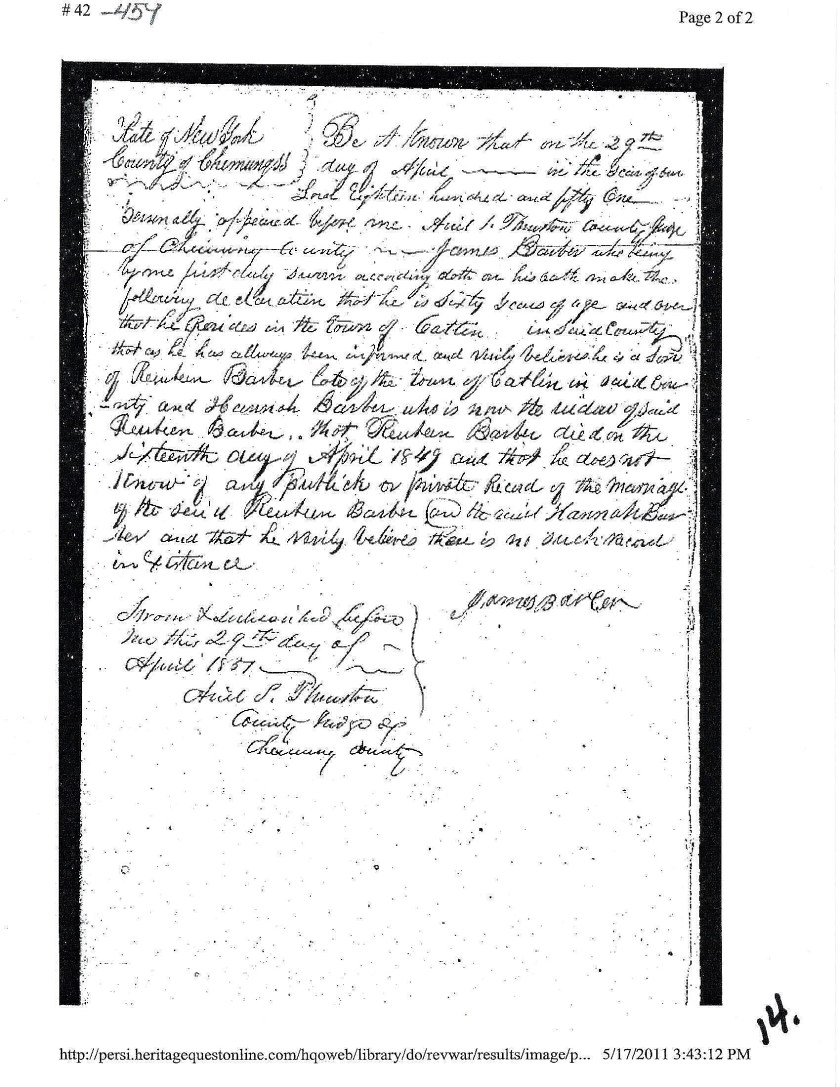 # 42 -454
Page 2 of 2
State of New York
County of Chemung ss
Be it Known that on the 29th
day of April in the year of our
Lord Eighteen hundred and fifty One
personally appeared before me Ariel S. Thurston County Judge
of Chemung County James Barber who being
by me first duly sworn according doth on his oath make the
following declaration that he is Sixty years of age and over
that he Resides in the town of Catlin in Said County
that as he has allways been informed and verily believes he is a Son
of Reuben Barber late of the town of Catlin in said Cou-
-nty and Hannah Barber who is now the widow of said
Reuben Barber, that Reuben Barber died on the
Sixteenth day of April 1849 and that he does not
Know of any publick or private Record of the marriage
of the said Reuben Barber and the said Hannah Bar
ber and that he verily believes there is no such record
in Existance
James Barber
Sworn & Subscribed before
me this 29th day of
April 1851
Ariel S. Thurston
County Judge of
Chemung County
14.
http://persi.heritagequestonline.com/hqoweb/library/do/revwar/results/image/p... 5/17/2011 3:43:12 PM